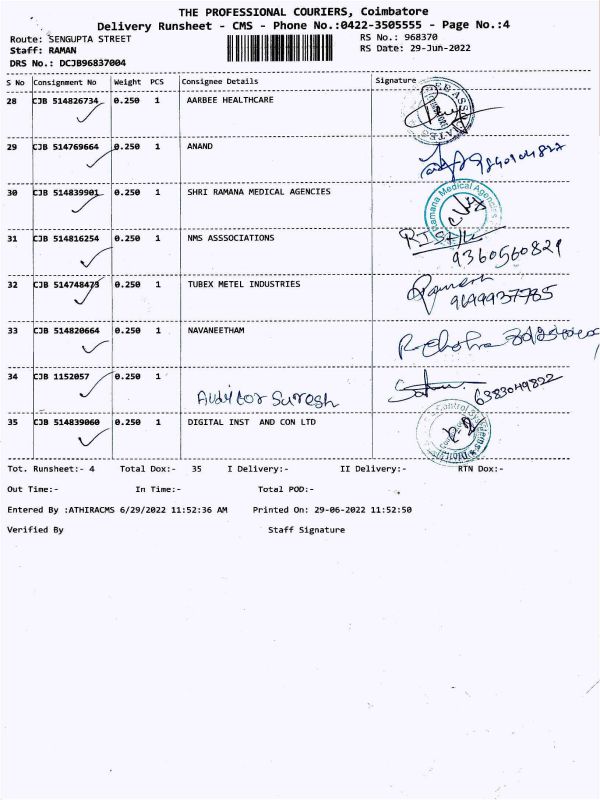 THE PROFESSIONAL COURIERS, Coimbatore
Delivery Runsheet - CMS - Phone No.:0422-3505555 - Page No.:4
Route: SENGUPTA STREET RS No.: 968370
Staff: RAMAN RS Date: 29-Jun-2022
DRS No.: DCJB96837004
S No Consignment No Weight PCS Consignee Details Signature
28 CJB 514826734 0.250 1 AARBEE HEALTHCARE
29 CJB 514769664 0.250 1 ANAND
30 CJB 514839901 0.250 1 SHRI RAMANA MEDICAL AGENCIES
Ramana Medical Agencies
31 CJB 514816254 0.250 1 NMS ASSSOCIATIONS
9360560829
32 CJB 514748473 0.250 1 TUBEX METEL INDUSTRIES Ramesh
33 CJB 514820664 0.250 1 NAVANEETHAM
34 CJB 1152057 0.250 1 6383049822
Auditor Suresh
35 CJB 514839060 0.250 1 DIGITAL INST AND CON LTD
Tot. Runsheet:- 4 Total Dox:- 35 I Delivery:- II Delivery:- RTN Dox:-
Out Time:- In Time:- Total POD:-
Entered By :ATHIRACMS 6/29/2022 11:52:36 AM Printed On: 29-06-2022 11:52:50
Verified By Staff Signature